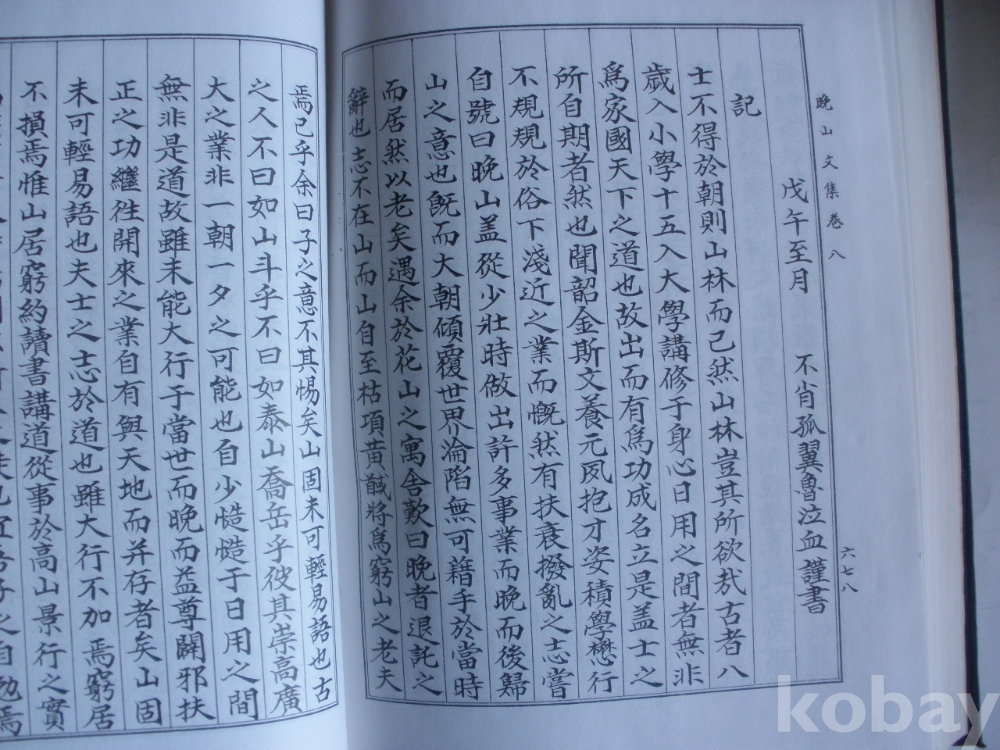 晚山文集卷八
六七八
戊午至月 不肖孤翼魯泣血謹書
記
士不得於朝則山林而已然山林豈其所欲㢤古者八
歲入小學十五入大學講修于身心日用之間者無非
爲家國天下之道也故出而有爲功成名立是盖士之
所自期者然也聞韶金斯文養元夙抱才姿積學懋行
不規規於俗下淺近之業而慨然有扶衰撥亂之志嘗
自號曰晚山盖從少壯時做出許多事業而晚而後歸
山之意也旣而大朝傾覆世界淪陷無可籍手於當時
而居然以老矣遇余於花山之寓舍歎曰晚者退託之
辭也志不在山而山自至枯項黃馘將爲窮山之老夫
焉已乎余曰子之意不其惕矣山固未可輕易語也古
之人不曰如山斗乎不曰如泰山喬岳乎彼其崇高廣
大之業非一朝一夕之可能也自少慥慥于日用之間
無非是道故雖未能大行于當世而晚而益尊闢邪扶
正之功繼徃開來之業自有與天地而并存者矣山固
未可輕易語也夫士之志於道也雖大行不加焉窮居
不損焉惟山居窮約讀書講道從事於高山景行之實
kobay